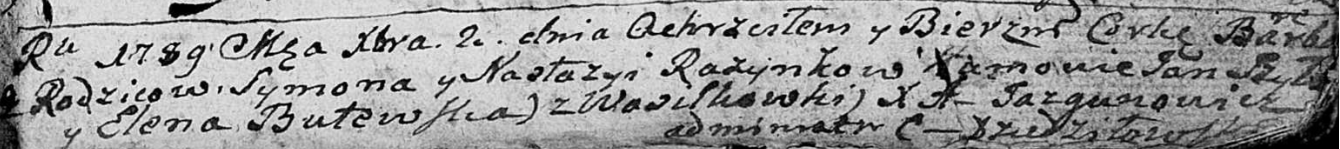 Ru 1789 Mca Xbra. 2. dnia Ochrzciłem y Bierzm Corkę Barba
Rodzicow. Symona y Nastazyi Razynkow Kumowie Jan Szyła
y Elena Butewska) z Wasilkowki) X A- Jazgunowicz
administr C- Dziedziłowsk